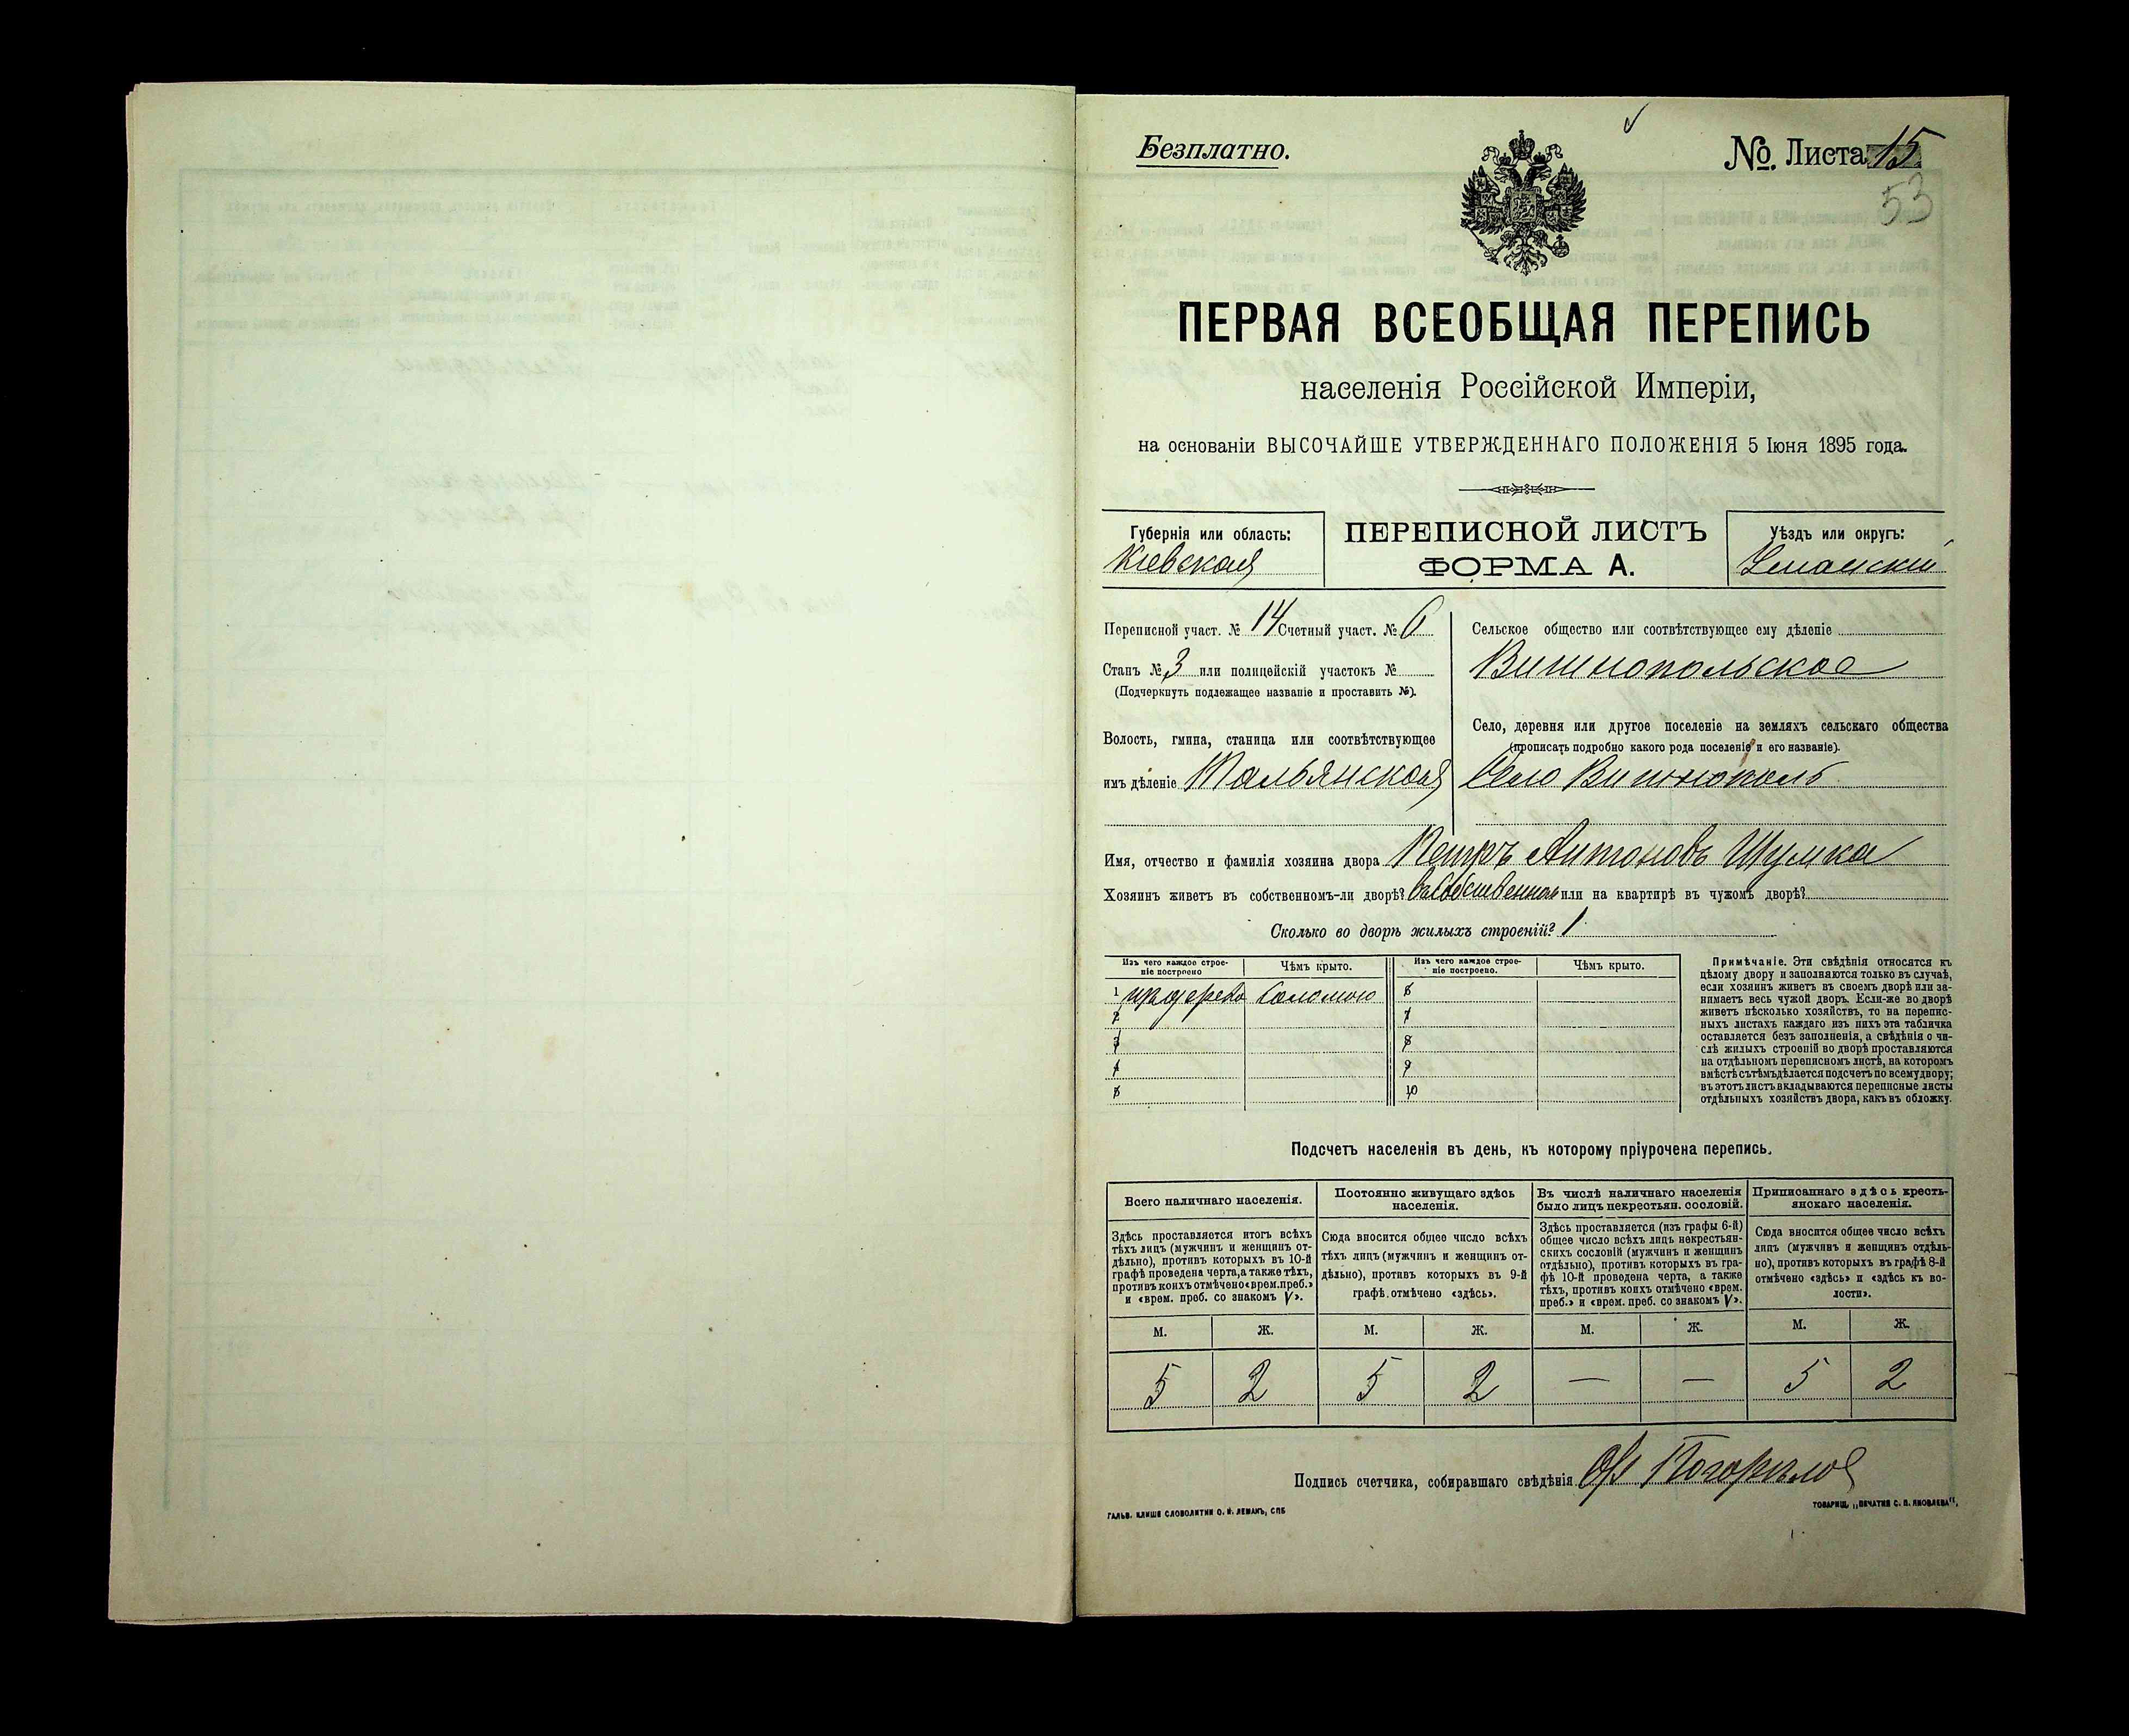 Безплатно.
№. Листа 15
53
ПЕРВАЯ ВСЕОБЩАЯ ПЕРЕПИСЬ
населенія Россійской Имперіи,
на основаніи ВЫСОЧАЙШЕ УТВЕРЖДЕННАГО ПОЛОЖЕНІЯ 5 Іюня 1895 года.
Губернія или область:
Кіевская
ПЕРЕПИСНОЙ ЛИСТЪ
ФОРМА А.
Уѣздъ или округъ:
Уманскій
Переписной участ. № 14 Счетный участ. № 6
Станъ № 3 или полицейскій участокъ №
(Подчеркнуть подлежащее названіе и проставить №).
Волость, гмина, станица или соотвѣтствующее
имъ дѣленіе Тальянская
Сельское общество или соотвѣтствующее ему дѣленіе
Вишнопольское
Село, деревня или другое поселеніе на земляхъ сельскаго общества
(прописать подробно какого рода поселеніе и его названіе).
Село Вишнополь
Имя, отчество и фамилія хозяина двора Петръ Антоновъ Шумка
Хозяинъ живетъ въ собственномъ-ли дворѣ? въ собственном или на квартирѣ въ чужомъ дворѣ?
Сколько во дворѣ жилыхъ строеній? 1
Изъ чего каждое строе-
ніе построено
Чѣмъ крыто.
Изъ чего каждое строе-
ніе построено.
Чѣмъ крыто.
1 изъ дерева соломою 6
2 7
3 8
4 9
5 10
Примѣчаніе. Эти свѣдѣнія относятся къ
цѣлому двору и заполняются только въ случаѣ,
если хозяинъ живетъ въ своемъ дворѣ или за-
нимаетъ весь чужой дворъ. Если-же во дворѣ
живетъ нѣсколько хозяйствъ, то на перепис-
ныхъ листахъ каждаго изъ нихъ эта табличка
оставляется безъ заполненія, а свѣдѣнія о чи-
слѣ жилыхъ строеній во дворѣ проставляются
на отдѣльномъ переписномъ листѣ, на которомъ
вмѣстѣ съ тѣмъ дѣлается подсчетъ по всему двору;
въ этотъ листъ вкладываются переписные листы
отдѣльныхъ хозяйствъ двора, какъ въ обложку.
Подсчетъ населенія въ день, къ которому пріурочена перепись.
Всего наличнаго населенія.
Здѣсь проставляется итогъ всѣхъ
тѣхъ лицъ (мужчинъ и женщинъ от-
дѣльно), противъ которыхъ въ 10-й
графѣ проведена черта, а также тѣхъ,
противъ коихъ отмѣчено «врем. преб.»
и «врем. преб. со знакомъ V».
Постоянно живущаго здѣсь
населенія.
Сюда вносится общее число всѣхъ
тѣхъ лицъ (мужчинъ и женщинъ от-
дѣльно), противъ которыхъ въ 9-й
графѣ отмѣчено «здѣсь».
Въ числѣ наличнаго населенія
было лицъ некрестьян. сословій.
Здѣсь проставляется (изъ графы 6-й)
общее число всѣхъ лицъ некрестьян-
скихъ сословій (мужчинъ и женщинъ
отдѣльно), противъ которыхъ въ гра-
фѣ 10-й проведена черта, а также
тѣхъ, противъ коихъ отмѣчено «врем.
преб.» и «врем. преб. со знакомъ V».
Приписаннаго здѣсь кресть-
янскаго населенія.
Сюда вносится общее число всѣхъ
лицъ (мужчинъ и женщинъ отдѣль-
но), противъ которыхъ въ графѣ 8-й
отмѣчено «здѣсь» и «здѣсь къ во-
лости».
М. Ж. М. Ж. М. Ж. М. Ж.
5 2 5 2 — — 5 2
Подпись счетчика, собиравшаго свѣдѣнія
ГАЛЬВ. КЛИШЕ СЛОВОЛИТНИ О. И. ЛЕМАНЪ, СПБ
ТОВАРИЩ. „ПЕЧАТНЯ С. П. ЯКОВЛЕВА“,